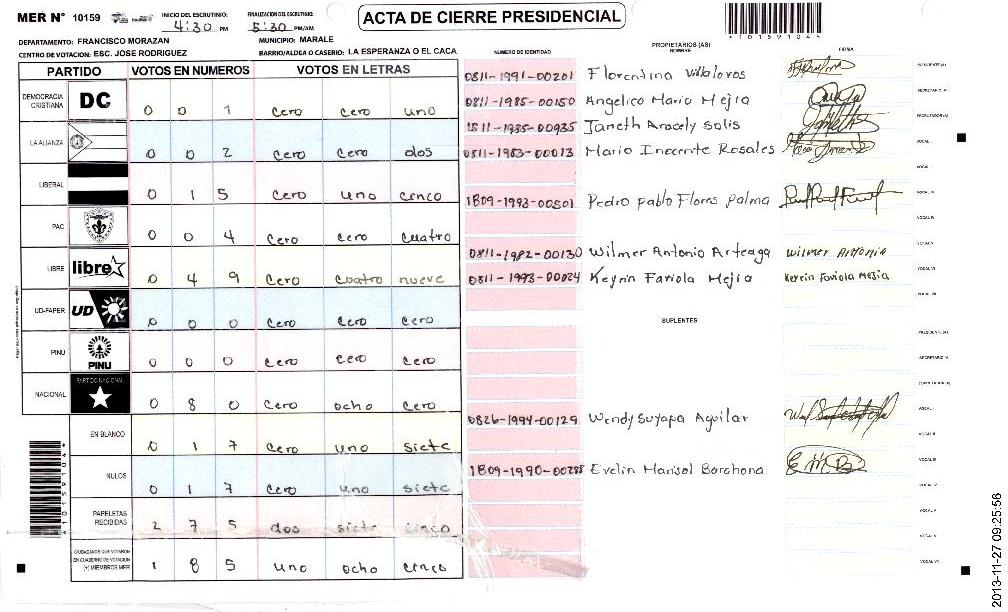 MER N° 10159
INICIO DEL ESCRUTINIO: 4:30 PM
FINALIZACION DEL ESCRUTINIO: 5:30 PM/AM
ACTA DE CIERRE PRESIDENCIAL
*10159104*
DEPARTAMENTO: FRANCISCO MORAZAN
MUNICIPIO: MARALE
CENTRO DE VOTACION: ESC. JOSE RODRIGUEZ
BARRIO/ALDEA O CASERIO: LA ESPERANZA O EL CACA
PARTIDO VOTOS EN NUMEROS VOTOS EN LETRAS
DEMOCRACIA CRISTIANA DC 0 0 1 cero cero uno
LA ALIANZA 0 0 2 cero cero dos
LIBERAL 0 1 5 cero uno cinco
PAC 0 0 4 cero cero cuatro
LIBRE libre 0 4 9 cero cuatro nueve
UD-FAPER UD 0 0 0 cero cero cero
PINU PINU 0 0 0 cero cero cero
NACIONAL PARTIDO NACIONAL 0 8 0 cero ocho cero
EN BLANCO 0 1 7 cero uno siete
NULOS 0 1 7 cero uno siete
PAPELETAS RECIBIDAS 2 7 5 dos siete cinco
CIUDADANOS QUE VOTARON EN CUADERNO DE VOTACION (+) MIEMBROS MER 1 8 5 uno ocho cinco
*10159104*
NUMERO DE IDENTIDAD
PROPIETARIOS (AS)
NOMBRE
FIRMA
0811-1991-00201 Florentina Villaloros PRESIDENTE (A)
0811-1985-00150 Angelico Mario Mejia SECRETARIO (A)
1511-1985-00935 Janeth Aracely Solis ESCRUTADOR (A)
0811-1983-00013 Mario Inocente Rosales VOCAL I
VOCAL II
1809-1993-00501 Pedro Pablo Flores Palma VOCAL III
VOCAL IV
0811-1982-00130 Wilmer Antonio Arteaga Wilmer Antonio VOCAL V
0811-1993-00024 Keyrin Fariola Mejia Kerrin Fariola Mejia VOCAL VI
VOCAL VII
SUPLENTES
PRESIDENTE (A)
SECRETARIO (A)
ESCRUTADOR (A)
0826-1994-00129 Wendy Suyapa Aguilar VOCAL I
VOCAL II
1809-1990-00285 Evelin Marisol Barahona VOCAL III
VOCAL IV
VOCAL V
VOCAL VI
VOCAL VII
2013-11-27 09:25:56